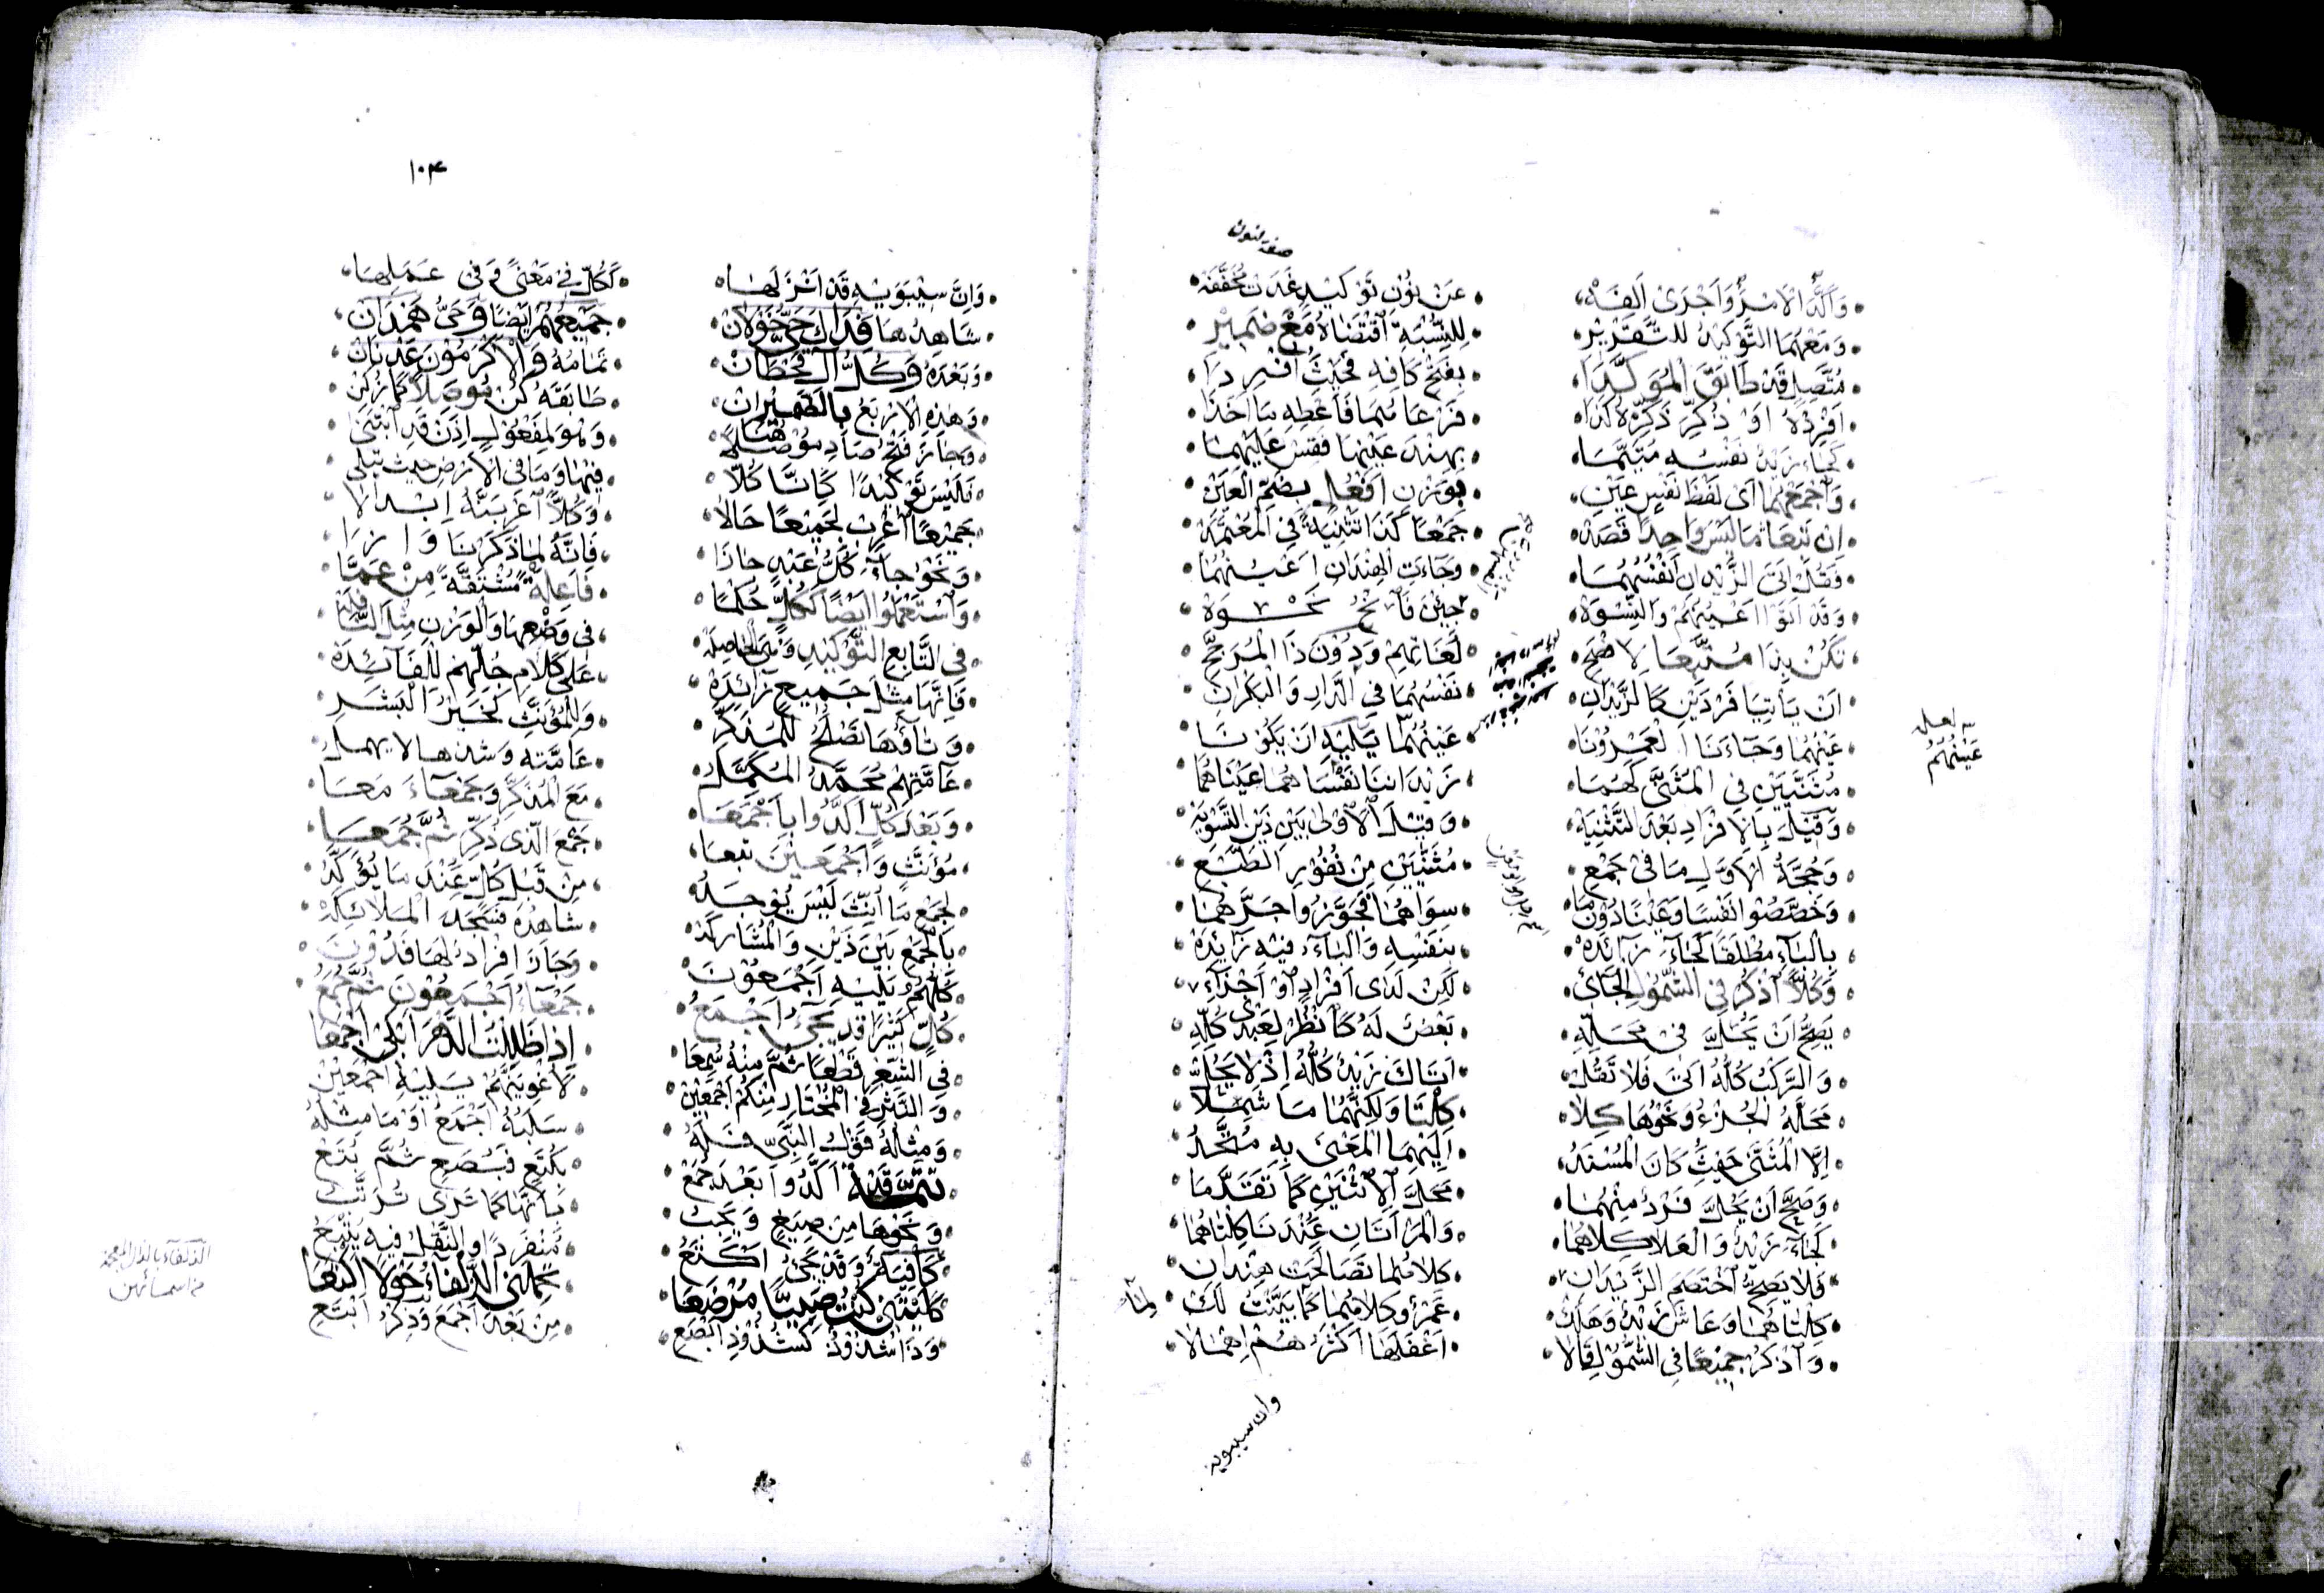 وَأَكَّدَ الْأَمْرُ وَأَجْرَى أَلِفَهْ عَنْ نُوْنِ تَوْكِيْدٍ غَدَتْ مُخَفَّفَهْ
وَمَعْهُمَا التَّوْكِيْدُ لِلتَّقْرِيْرِ لِلنِّسْبَةِ اقْتَضَاهُ مَعْ ضَمِيْرِ
مُتَّصِلٍ قَدْ طَابَقَ الْمُؤَكَّدَا بِفَتْحِ كَافِهِ فَحَيْثُ أُفْرِدَا
أَفْرِدْهُ أَوْ ذُكِّرَ ذَكِّرْهُ كَذَا فَرْعَاهُمَا فَأَعْطِهِ مَا أَخَذَا
كَجَاءَ زَيْدٌ نَفْسُهُ مُتَيَّمَا بِهِنْدَ عَيْنِهَا فَقِسْ عَلَيْهِمَا
وَاجْمَعْهُمَا أَيْ لَفْظَ نَفْسٍ عَيْنِ بِوَزْنِ أَفْعُلٍ بِضَمِّ الْعَيْنِ
إِنْ تَبِعَا مَا لَيْسَ وَاحِدًا قَصَدْهُ جَمْعًا كَذَا تَثْنِيَةً فِي الْمُعْتَمَدْ
فَقُلْ أَتَى الزَّيْدَانِ أَنْفُسُهُمَا وَجَاءَتِ الْهِنْدَانِ أَعْيُنُهُمَا
وَقَدْ أَتَوْا أَعْيُنُهُمْ وَالنِّسْوَهْ جِئْنَ فَانْحُ نَحْوَهْ
تَكُنْ بِذَا مُتَّبِعَا لَا ضَحِّ لُغَاتِهِمْ وَدُوْنَ ذَا الْمُرَجَّحِ
أَنْ يَأْتِيَا فَرْدَيْنِ كَالزَّيْدَانِ نَفْسُهُمَا فِي الدَّارِ وَالْبَكْرَانِ
عَيْنُهُمَا وَجَاءَنَا الْعَمْرُوْنَا عَيْنُهُمَا يَلِيْهِ أَنْ يَكُوْنَا
مُثَنَّيَيْنِ فِي الْمُثَنَّى كَهُمَا زَيْدَانِنَا نَفْسَاهُمَا عَيْنَاهُمَا
وَقِيْلَ بِالْإِفْرَادِ بَعْدَ التَّثْنِيَهْ وَقِيْلَ الْأَوْلَى بَيْنَ ذَيْنِ التَّسْوِيَهْ
وَحُجَّةُ الْأَوَّلِ مَا فِي جَمْعِ مُثَنَّيَيْنِ مِنْ نُفُوْرِ الطَّبْعِ
وَخَصَّصُوْا نَفْسًا وَعَيْنًا دُوْنَ مَا سِوَاهُمَا فَجَوَّزُوْا جَرَّهُمَا
بِالْبَاءِ مُطْلَقًا كَجَاءَ زَائِدَهْ بِنَفْسِهِ وَالْبَاءُ فِيْهِ زَائِدَهْ
وَكُلًّا اذْكُرْ فِي الشُّمُوْلِ الْجَائِيْ لَكِنْ لَدَى أَفْرَادٍ أَوْ أَجْزَاءِ
يَصِحُّ أَنْ يَحُلَّ فِي مَحَلِّهِ بَعْضٌ لَهُ كَانْظُرْ لِعَبْدِيْ كُلِّهِ
وَالرَّكْبُ كُلُّهُ أَتَى فَلَا تَقُلْ أَتَاكَ زَيْدٌ كُلُّهُ إِذْ لَا يَحُلْ
مَحَلَّهُ الْجُزْءُ وَنَحْوُهَا كِلَا كِلْتَا وَلَكِنَّهُمَا مَا شَمِلَا
إِلَّا الْمُثَنَّى حَيْثُ كَانَ الْمُسْنَدُ إِلَيْهِمَا الْمَعْنَى بِهِ مُتَّحِدُ
وَصَحَّ أَنْ يَحُلَّ فَرْدٌ مِنْهُمَا مَحَلَّ الِاثْنَيْنِ كَمَا تَقَدَّمَا
كَجَاءَ زَيْدٌ وَالْعَلَا كِلَاهُمَا وَالْمَرْأَتَانِ عِنْدَنَا كِلْتَاهُمَا
فَلَا يَصِحُّ اخْتَصَمَ الزَّيْدَانِ كِلَاهُمَا تَصَالَحَتْ هِنْدَانِ
كِلْتَاهُمَا وَعَاشَ زَيْدٌ وَهَلَكْ عَمْرٌو كِلَاهُمَا كَمَا بَيَّنْتُ لَكْ
وَاذْكُرْ جَمِيْعًا فِي الشُّمُوْلِ قَالَا أَغْفَلَهَا أَكْثَرُهُمْ إِهْمَالَا
لعله
عَيْنُهُمْ
وان سيبويه
١٠٤
وَإِنَّ سِيْبَوَيْهِ قَدْ أَنْزَلَهَا كَكُلٍّ فِي مَعْنًى وَفِي عَمَلِهَا
شَاهِدُهَا فِدَاكَ حَيُّ خَوْلَانْ جَمِيْعُهُمْ أَيْضًا وَحَيُّ هَمْدَانْ
وَبَعْدَهُ وَكُلُّ آلِ قَحْطَانْ تَمَامُهُ وَالْأَكْرَمُوْنَ عَدْنَانْ
وَهٰذِهِ الْأَرْبَعُ بِالضَّمِيْرِ إِنْ طَابَقَهُ كُنْ مُوْصِلًا كَمَا زُكِنْ
وَجَازَ فَتْحُ صَادِ مُوْصَلًا هُنَا وَهْوَ لِمَفْعُوْلٍ إِذَنْ قَدِ ابْتَنَى
فَلَيْسَ تَوْكِيْدًا كَإِنَّا كُلَّا فِيْهَا وَمَا فِي الْأَرْضِ حَيْثُ تُتْلَى
جَمِيْعًا اعْرِبْ لِجَمِيْعًا حَالَا وَكُلًّا اعْرِبَنَّهُ إِبْدَالَا
وَنَحْوُ جَاءَ كُلُّ عَبْدٍ حَازَا فَإِنَّهُ لِمَا ذَكَرْنَا وَازَا
وَاسْتَعْمَلُوْا أَيْضًا كَكُلٍّ حُكْمَا فَاعِلَةً مُشْتَقَّةً مِنْ عَمَّا
فِي التَّابِعِ التَّوْكِيْدِ وَهْيَ الْحَاصِلَهْ فِي وَضْعِهَا وَالْوَزْنِ مِثْلَ النَّافِلَهْ
فَإِنَّهَا مِثْلَ جَمِيْعٍ زَائِدَهْ عَلَى كَلَامِ جُلِّهِمْ لِلْفَائِدَهْ
وَتَاؤُهَا تَصْلُحُ لِلْمُذَكَّرِ وَلِلْمُؤَنَّثِ كَخَيْرُ الْبَشَرِ
عَامَّتِهِمْ مُحَمَّدُ الْمُكَمَّلُ عَامَّتِهِ وَشَدَّهَا لَا يُهْمَلُ
وَبَعْدَ كُلٍّ أَكَّدُوْا بِأَجْمَعَا مَعَ الْمُذَكَّرِ وَجَمْعَاءَ مَعَا
مُؤَنَّثٍ وَأَجْمَعِيْنَ تَبِعَا جَمْعَ الَّذِي ذُكِّرَ ثُمَّ جُمَعَا
لِجَمْعِ مَا أُنِّثَ لَيْسَ يُوْجَدُ مِنْ قَبْلِ كُلٍّ عِنْدَ مَا يُؤَكَّدُ
بِالْجَمْعِ بَيْنَ ذَيْنِ وَالْمُشَارَكَهْ شَاهِدُهُ فَسَجَدَ الْمَلَائِكَهْ
كُلُّهُمُ يَلِيْهِ أَجْمَعُوْنَ وَجَازَ إِفْرَادٌ لَهَا فَدُوْنَ
كُلٍّ كَثِيْرًا قَدْ يَجِيءُ أَجْمَعُ جَمْعَاءُ أَجْمَعُوْنَ ثُمَّ جُمَعُ
فِي الشِّعْرِ قَطْعًا ثُمَّ مِنْهُ سُمِعَا إِذًا ظَلِلْتُ الدَّهْرَ أَبْكِي أَجْمَعَا
وَالنَّثْرِ فِي الْمُخْتَارِ مِنْكُمْ أَجْمَعِيْنْ لَأُغْوِيَنَّهُمْ يَلِيْهِ أَجْمَعِيْنْ
وَمِثْلُهُ قَوْلُ النَّبِيِّ فَلَهُ سَلَبُهُ أَجْمَعُ أَوْ مَا مِثْلُهُ
تتمة قَدْ أَكَّدُوْا بَعْدَ جُمَعْ بِكُتَعٍ فَبُصَعٍ ثُمَّ بُتَعْ
وَنَحْوِهَا مِنْ صِيَغٍ وَيَجِبُ إِتْيَانُهَا كَمَا تَرَى تُرَتَّبُ
كَافِيَةٌ وَقَدْ يَجِيءُ أَكْتَعُ مُنْفَرِدًا وَالنَّقْلُ فِيْهِ يُتْبَعُ
كَلَيْتَنِي كُنْتُ صَبِيًّا مُرْضَعَا تَحْمِلُنِي الذَّلْفَاءُ حَوْلًا أَكْتَعَا
وَذَا شُذُوْذٌ كَشُذُوْذِ أَبْصَعِ مِنْ بَعْدِ أَجْمَعَ وَذِكْرِ أَبْتَعِ
الذلفاء بالذال المعجمة
من اسمائهن